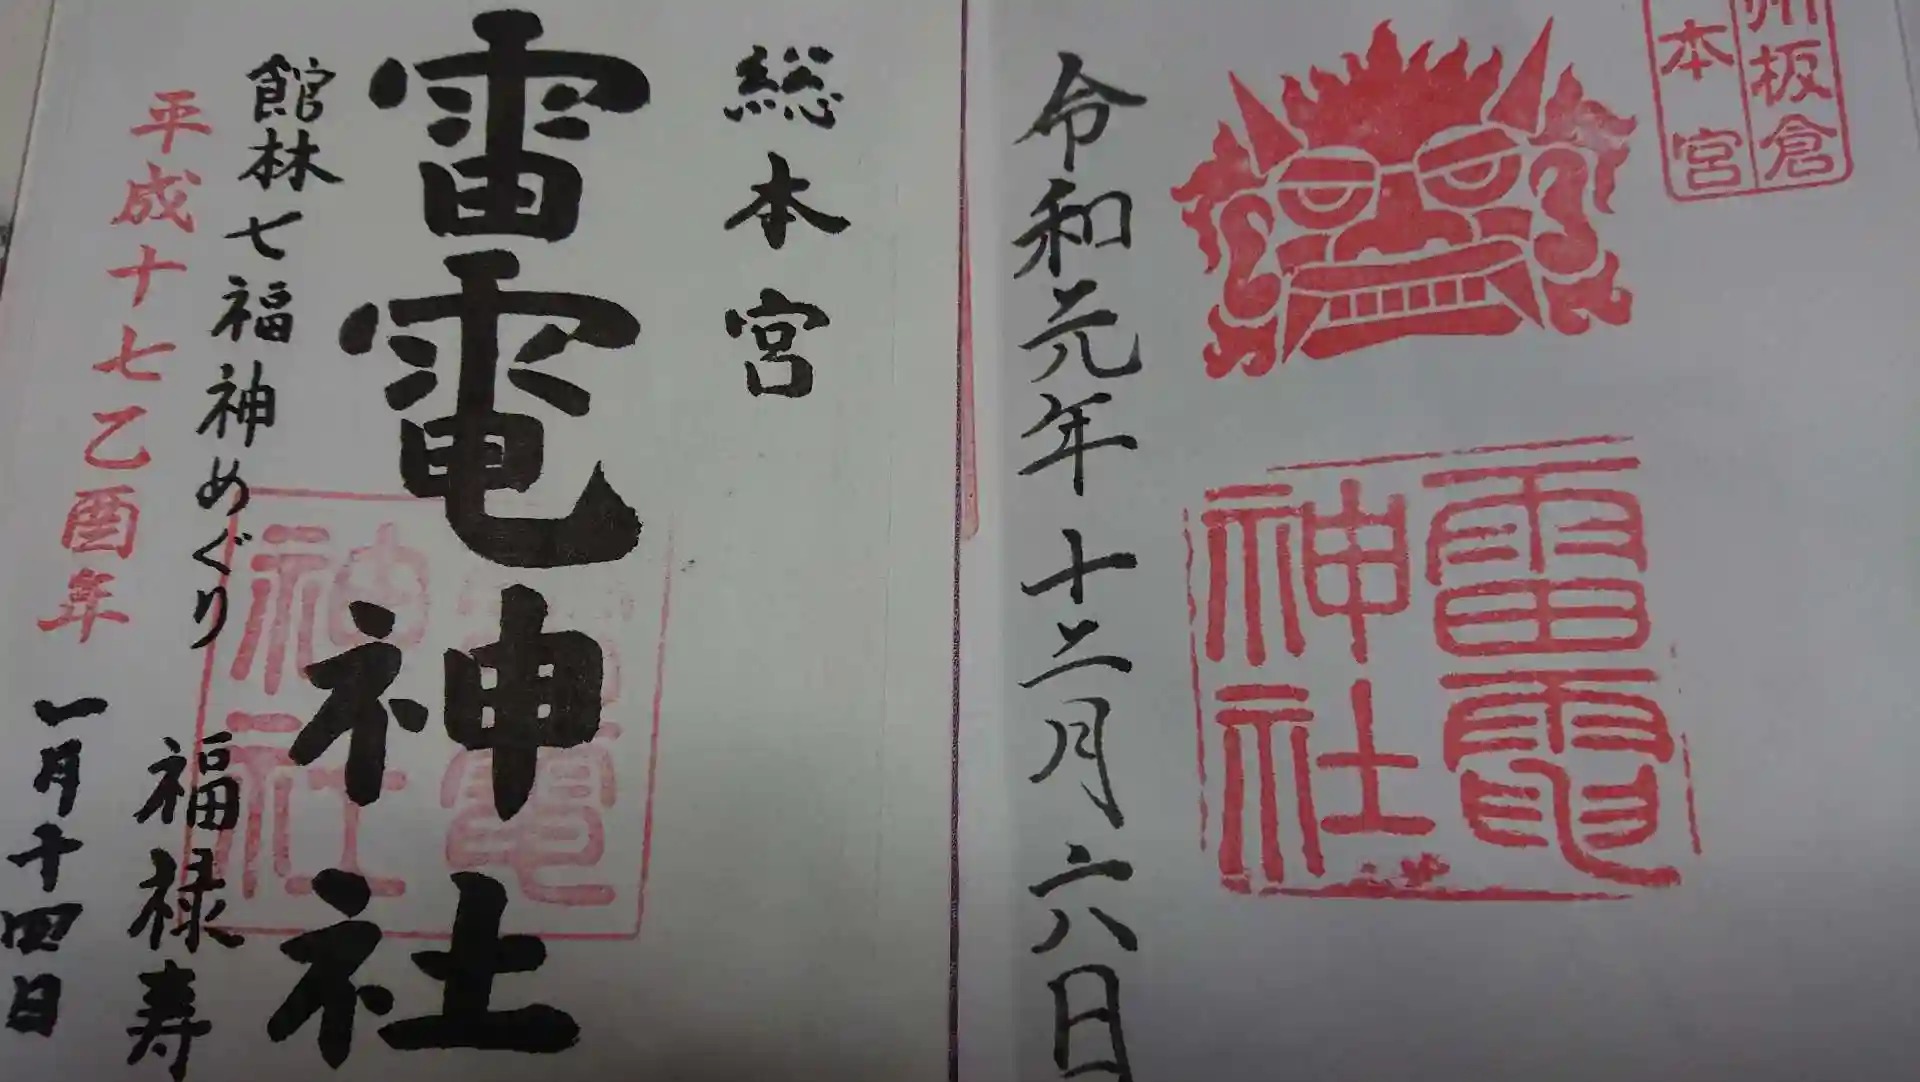 州板倉
本宮
雷電
神社
令和元年十二月六日
総本宮
雷電神社
館林七福神めぐり
福禄寿
平成十七乙酉年
一月十四日